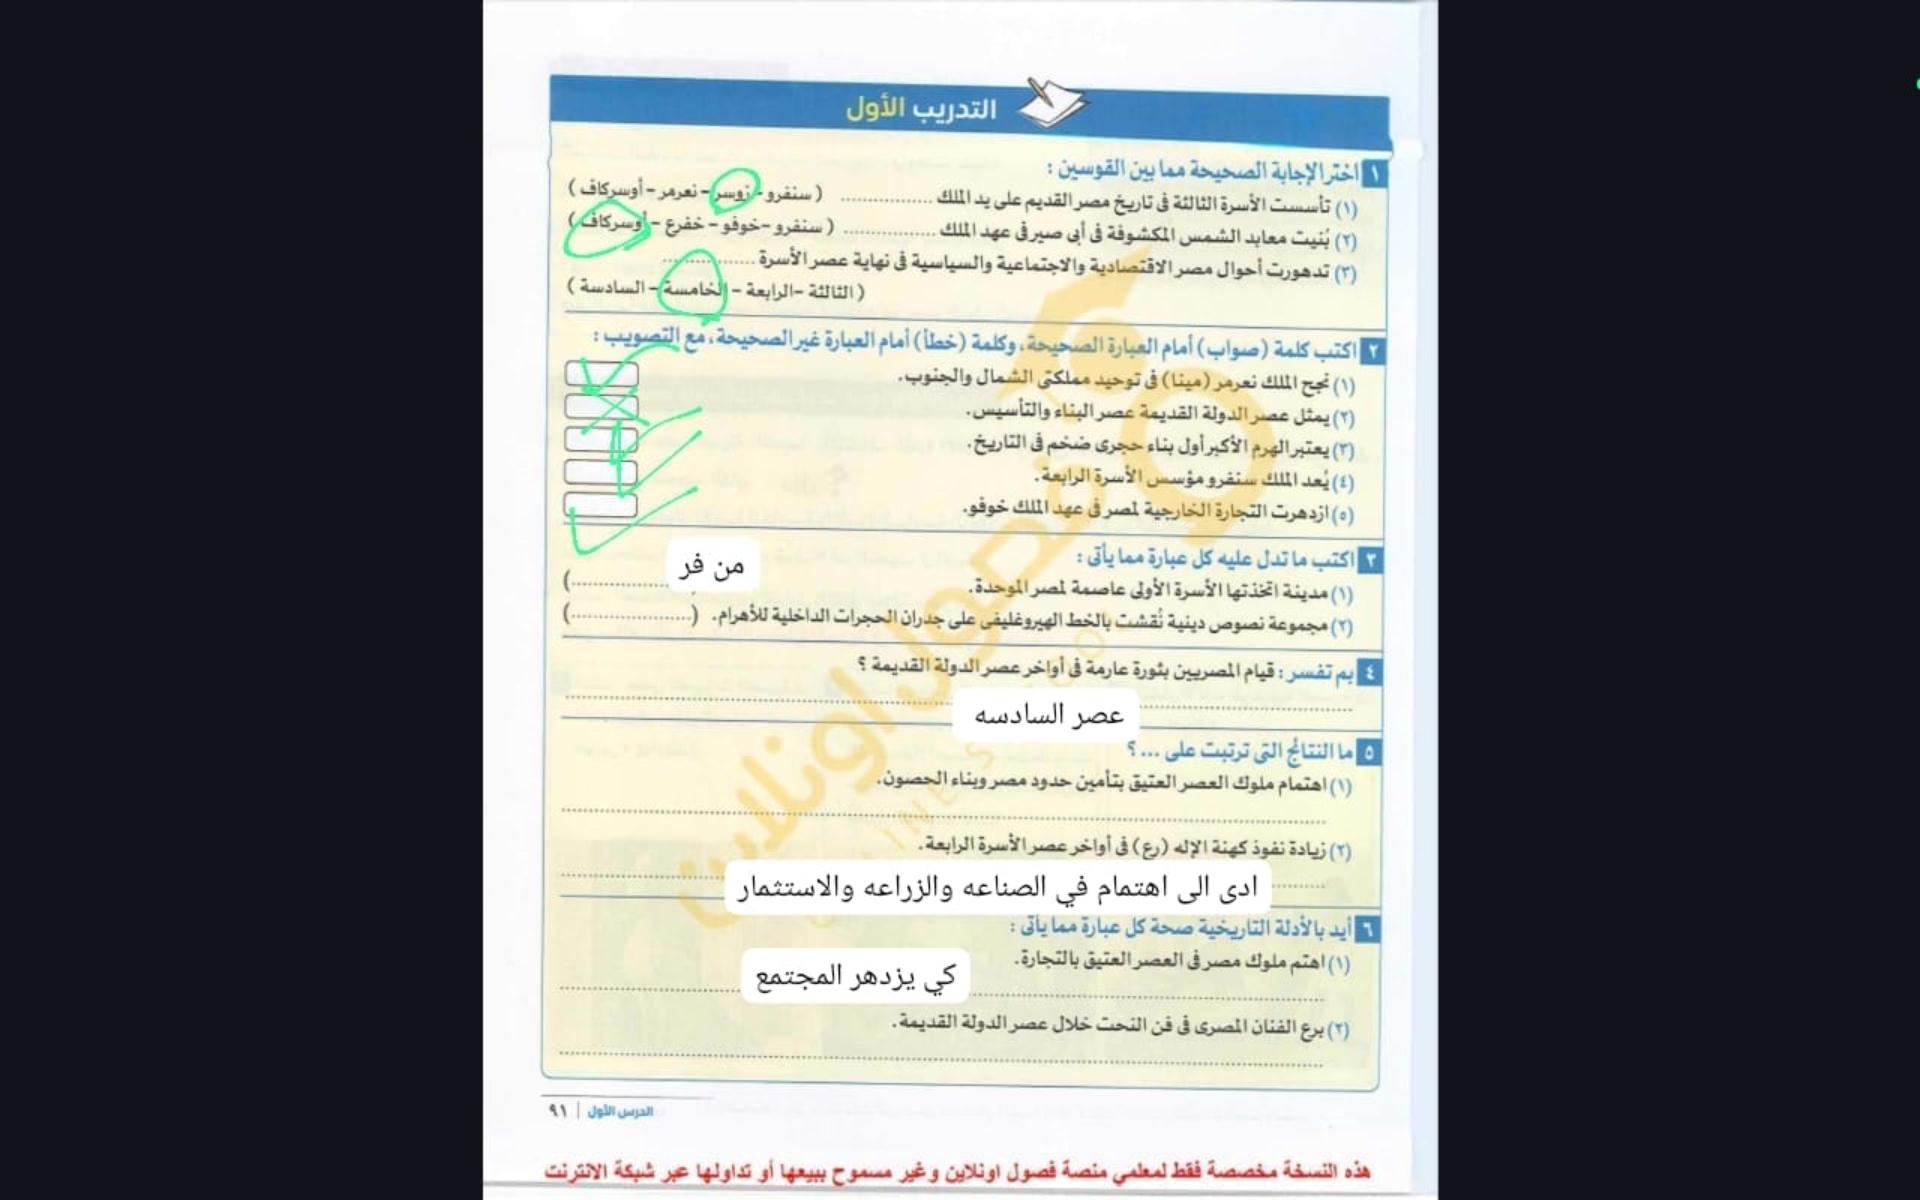 التدريب الأول
١ اختر الإجابة الصحيحة مما بين القوسين :
(١) تأسست الأسرة الثالثة فى تاريخ مصر القديم على يد الملك ................ ( سنفرو - زوسر - نعرمر - أوسركاف )
(٢) بُنيت معابد الشمس المكشوفة فى أبى صير فى عهد الملك ................ ( سنفرو - خوفو - خفرع - أوسركاف )
(٣) تدهورت أحوال مصر الاقتصادية والاجتماعية والسياسية فى نهاية عصر الأسرة ................
( الثالثة - الرابعة - الخامسة - السادسة )
٢ اكتب كلمة (صواب) أمام العبارة الصحيحة، وكلمة (خطأ) أمام العبارة غير الصحيحة، مع التصويب :
(١) نجح الملك نعرمر (مينا) فى توحيد مملكتى الشمال والجنوب.
(٢) يمثل عصر الدولة القديمة عصر البناء والتأسيس.
(٣) يعتبر الهرم الأكبر أول بناء حجرى ضخم فى التاريخ.
(٤) يُعد الملك سنفرو مؤسس الأسرة الرابعة.
(٥) ازدهرت التجارة الخارجية لمصر فى عهد الملك خوفو.
٣ اكتب ما تدل عليه كل عبارة مما يأتى :
من فر
(١) مدينة اتخذتها الأسرة الأولى عاصمة لمصر الموحدة. ................)
(٢) مجموعة نصوص دينية نُقشت بالخط الهيروغليفى على جدران الحجرات الداخلية للأهرام. (......................)
٤ بم تفسر : قيام المصريين بثورة عارمة فى أواخر عصر الدولة القديمة ؟
عصر السادسه
٥ ما النتائج التى ترتبت على ... ؟
(١) اهتمام ملوك العصر العتيق بتأمين حدود مصر وبناء الحصون.
(٢) زيادة نفوذ كهنة الإله (رع) فى أواخر عصر الأسرة الرابعة.
ادى الى اهتمام في الصناعه والزراعه والاستثمار
٦ أيد بالأدلة التاريخية صحة كل عبارة مما يأتى :
(١) اهتم ملوك مصر فى العصر العتيق بالتجارة.
كي يزدهر المجتمع
(٢) برع الفنان المصرى فى فن النحت خلال عصر الدولة القديمة.
الدرس الأول | ٩١
هذه النسخة مخصصة فقط لمعلمي منصة فصول اونلاين وغير مسموح ببيعها أو تداولها عبر شبكة الانترنت
فصول اونلاين